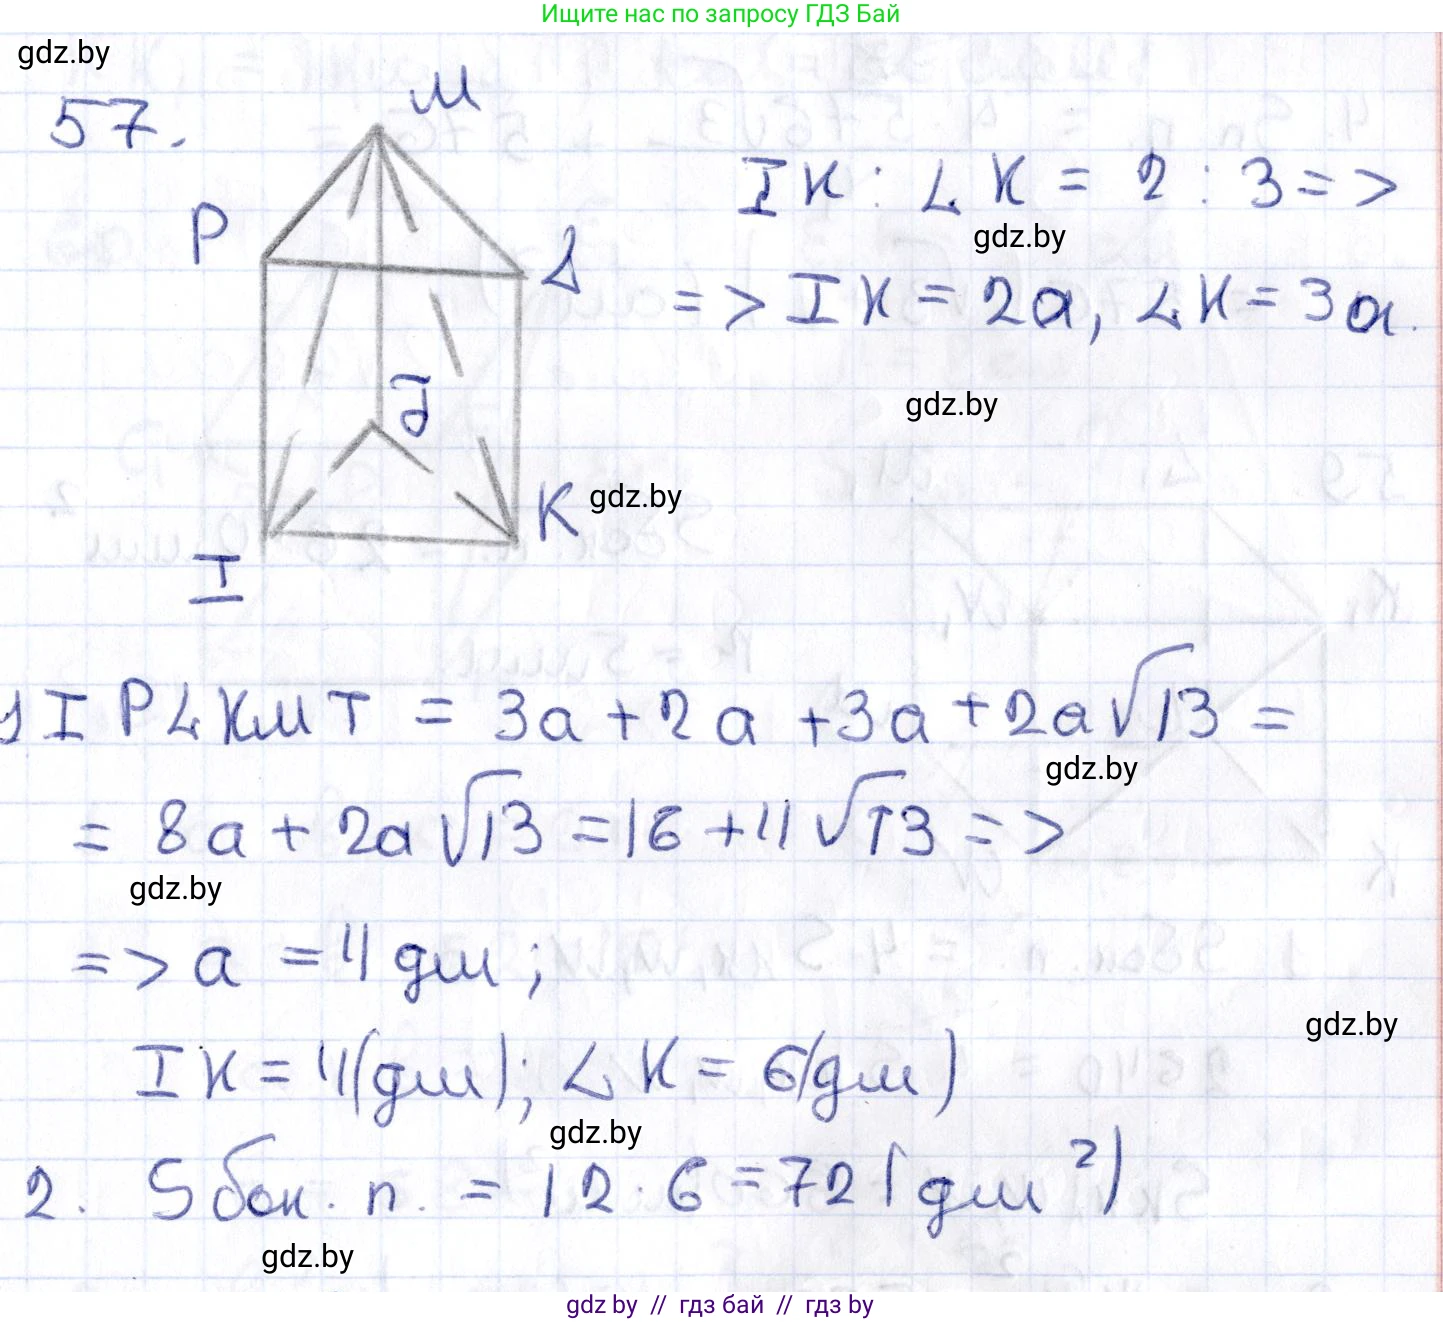 Ищите нас по запросу ГДЗ Бай
gdz.by
57.
M
P
L
J
K
I
IK : LK = 2 : 3 =>
gdz.by
=> IK = 2a, LK = 3a.
gdz.by
gdz.by
1) IPLKMT = 3a + 2a + 3a + 2a√13 =
gdz.by
= 8a + 2a√13 = 16 + 4√13 =>
gdz.by
=> a = 4 дм;
gdz.by
IK = 4(дм); LK = 6(дм)
gdz.by
2. Sбок. п. = 12 · 6 = 72 (дм²)
gdz.by
gdz.by // гдз бай // гдз by